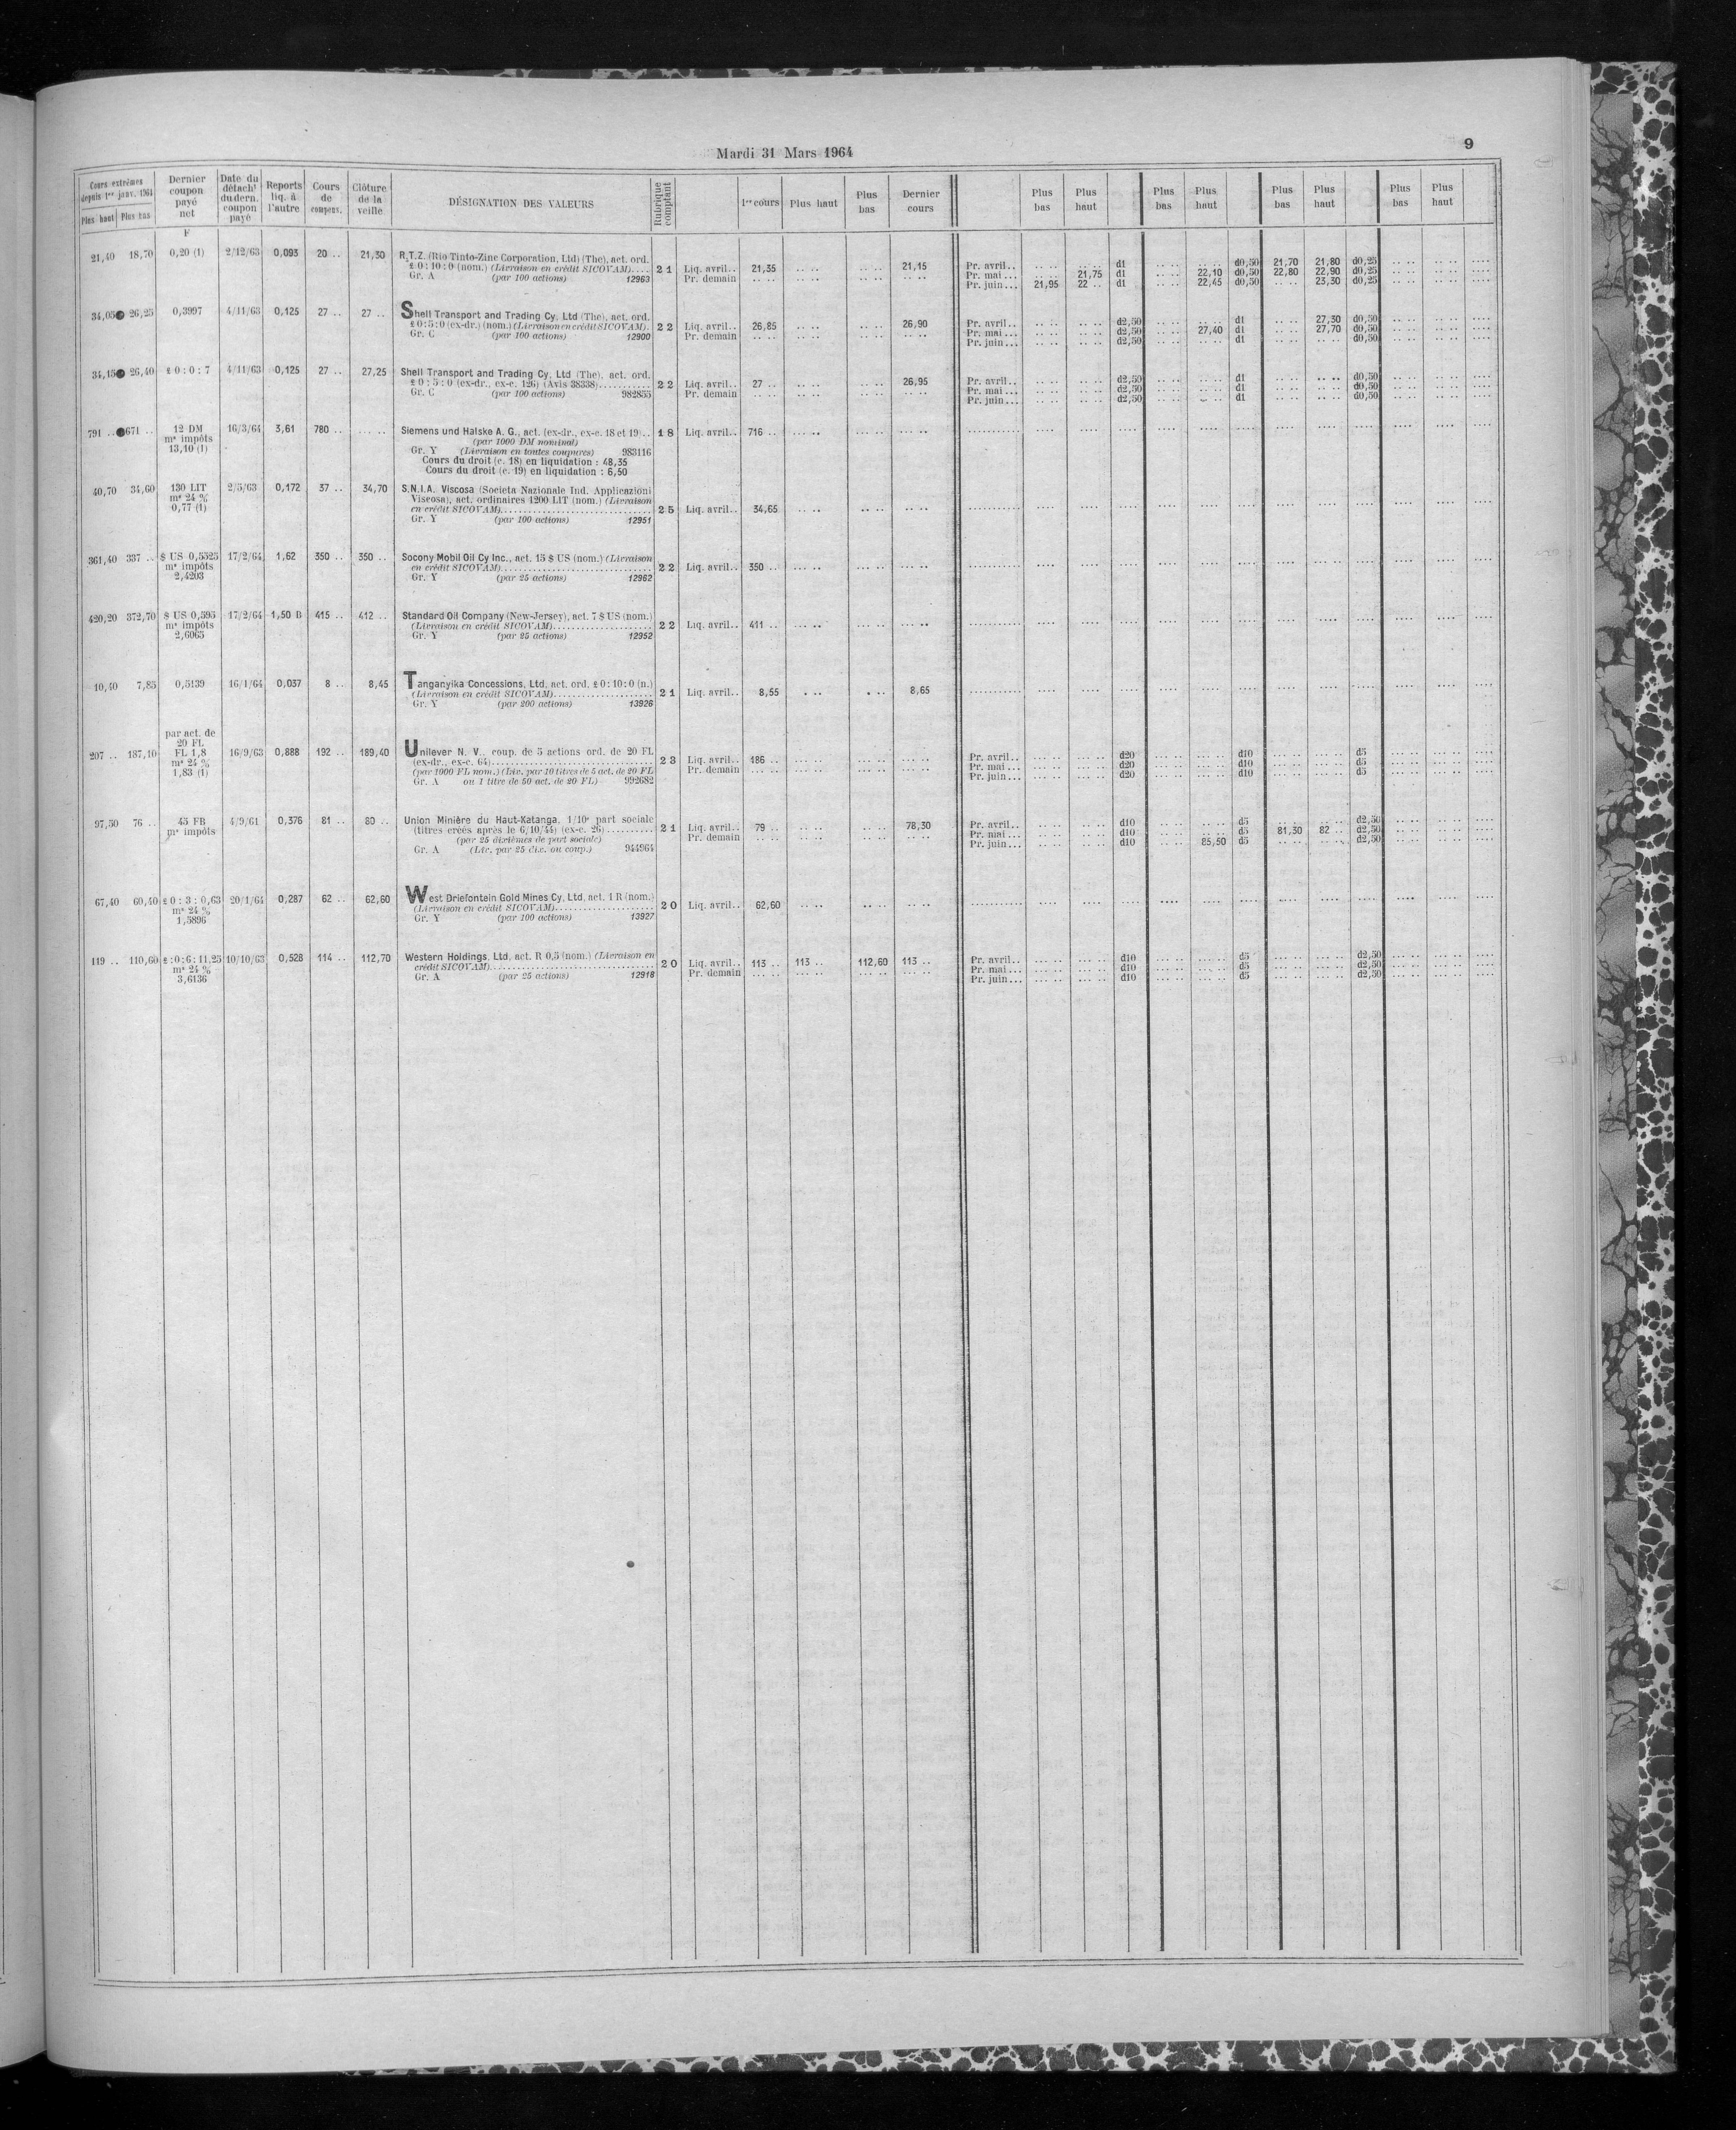 Mardi 31 Mars 1964
9
Cours extrêmes depuis 1er janv. 1964 Plus haut Plus bas | Dernier coupon payé net | Date du détacht du dern. coupon payé | Reports liq. à l'autre | Cours de coupens. | Clôture de la veille | DÉSIGNATION DES VALEURS | Rubrique comptant | 1er cours | Plus haut | Plus bas | Dernier cours | Plus bas | Plus haut | Plus bas | Plus haut | Plus bas | Plus haut | Plus bas | Plus haut
F
21,40 18,70 0,20 (1) 2/12/63 0,093 20 .. 21,30 R.T.Z. (Rio Tinto-Zinc Corporation, Ltd) (The), act. ord.
£ 0:10:0 (nom.) (Livraison en crédit SICOVAM).... 21 Liq. avril.. 21,35 .. .. .. .. 21,15 Pr. avril.. .. .. .. .. d1 .. .. .. .. d0,50 21,70 21,80 d0,25
Gr. A (par 100 actions) 12963 Pr. demain .. .. .. .. .. .. .. .. Pr. mai... .. .. 21,75 d1 .. .. 22,10 d0,50 22,80 22,90 d0,25
Pr. juin... 21,95 22 .. d1 .. .. 22,45 d0,50 .. .. 23,30 d0,25
34,05 26,25 0,3997 4/11/63 0,125 27 .. 27 .. Shell Transport and Trading Cy, Ltd (The), act. ord.
£ 0:5:0 (ex-dr.) (nom.) (Livraison en crédit SICOVAM). 22 Liq. avril.. 26,85 .. .. .. .. 26,90 Pr. avril.. .. .. .. .. d2,50 .. .. .. .. d1 .. .. 27,30 d0,50
Gr. C (par 100 actions) 12900 Pr. demain .. .. .. .. .. .. .. .. Pr. mai... .. .. .. .. d2,50 .. .. 27,40 d1 .. .. 27,70 d0,50
Pr. juin... .. .. .. .. d2,50 .. .. .. .. d1 .. .. .. .. d0,50
34,15 26,40 £ 0:0:7 4/11/63 0,125 27 .. 27,25 Shell Transport and Trading Cy, Ltd (The), act. ord.
£ 0:5:0 (ex-dr., ex-c. 126) (Avis 38338)........... 22 Liq. avril.. 27 .. .. .. .. .. 26,95 Pr. avril.. .. .. .. .. d2,50 .. .. .. .. d1 .. .. .. .. d0,50
Gr. C (par 100 actions) 982855 Pr. demain .. .. .. .. .. .. .. .. Pr. mai... .. .. .. .. d2,50 .. .. .. .. d1 .. .. .. .. d0,50
Pr. juin... .. .. .. .. d2,50 .. .. .. .. d1 .. .. .. .. d0,50
791 .. 671 .. 12 DM 16/3/64 3,61 780 .. ... .. Siemens und Halske A. G., act. (ex-dr., ex-c. 18 et 19).. 18 Liq. avril.. 716 ..
ms impôts (par 1000 DM nominal)
13,10 (1) Gr. Y (Livraison en toutes coupures) 983116
Cours du droit (c. 18) en liquidation : 48,35
Cours du droit (c. 19) en liquidation : 6,50
40,70 34,60 130 LIT 2/5/63 0,172 37 .. 34,70 S.N.I.A. Viscosa (Societa Nazionale Ind. Applicazioni
ms 24 % Viscosa), act. ordinaires 1200 LIT (nom.) (Livraison
0,77 (1) en crédit SICOVAM).............................. 25 Liq. avril.. 34,65 .. .. .. .. .. ..
Gr. Y (par 100 actions) 12951
361,40 337 .. $ US 0,5525 17/2/64 1,62 350 .. 350 .. Socony Mobil Oil Cy Inc., act. 15 $ US (nom.) (Livraison
ms impôts en crédit SICOVAM).............................. 22 Liq. avril.. 350 .. ... .. ... .. ... ..
2,4203 Gr. Y (par 25 actions) 12962
420,20 372,70 $ US 0,595 17/2/64 1,50 B 415 .. 412 .. Standard Oil Company (New-Jersey), act. 7 $ US (nom.)
ms impôts (Livraison en crédit SICOVAM).................... 22 Liq. avril.. 411 .. ... .. ... .. ... ..
2,6065 Gr. Y (par 25 actions) 12952
10,40 7,85 0,5139 16/1/64 0,037 8 .. 8,45 Tanganyika Concessions, Ltd, act. ord. £ 0:10:0 (n.)
(Livraison en crédit SICOVAM).................... 21 Liq. avril.. 8,55 . .. . .. 8,65
Gr. Y (par 200 actions) 13926
par act. de
20 FL
207 .. 187,10 FL 1,8 16/9/63 0,888 192 .. 189,40 Unilever N. V., coup. de 5 actions ord. de 20 FL
ms 24 % (ex-dr., ex-c. 64)................................ 23 Liq. avril.. 186 .. ... .. ... .. ... .. Pr. avril.. ... .. ... .. d20 ... .. ... .. d10 ... .. ... .. d5
1,83 (1) (par 1000 FL nom.) (Liv. par 10 titres de 5 act. de 20 FL Pr. demain ... .. ... .. ... .. ... .. Pr. mai... ... .. ... .. d20 ... .. ... .. d10 ... .. ... .. d5
Gr. A ou 1 titre de 50 act. de 20 FL) 992682 Pr. juin... ... .. ... .. d20 ... .. ... .. d10 ... .. ... .. d5
97,50 76 .. 45 FB 4/9/61 0,376 81 .. 80 .. Union Minière du Haut-Katanga, 1/10e part sociale
ms impôts (titres créés après le 6/10/44) (ex-c. 26).......... 21 Liq. avril.. 79 .. .. .. .. .. 78,30 Pr. avril.. .. .. .. .. d10 .. .. .. .. d5 .. .. .. .. d2,50
(par 25 dixièmes de part sociale) Pr. demain .. .. .. .. .. .. .. .. Pr. mai... .. .. .. .. d10 .. .. .. .. d5 81,30 82 .. d2,50
Gr. A (Liv. par 25 dix. ou coup.) 944964 Pr. juin... .. .. .. .. d10 .. .. 85,50 d5 .. .. .. .. d2,50
67,40 60,40 £ 0:3:0,63 20/1/64 0,287 62 .. 62,60 West Driefontein Gold Mines Cy, Ltd, act. 1 R (nom.)
ms 24 % (Livraison en crédit SICOVAM).................... 20 Liq. avril.. 62,60 .. .. .. .. .. ..
1,5896 Gr. Y (par 100 actions) 13927
119 .. 110,60 £:0:6:11,25 10/10/63 0,528 114 .. 112,70 Western Holdings, Ltd, act. R 0,5 (nom.) (Livraison en
ms 24 % crédit SICOVAM)................................ 20 Liq. avril.. 113 .. 113 .. 112,60 113 .. Pr. avril.. ... .. ... .. d10 ... .. ... .. d5 ... .. ... .. d2,50
3,6136 Gr. A (par 25 actions) 12918 Pr. demain ... .. ... .. ... .. ... .. Pr. mai... ... .. ... .. d10 ... .. ... .. d5 ... .. ... .. d2,50
Pr. juin... ... .. ... .. d10 ... .. ... .. d5 ... .. ... .. d2,50